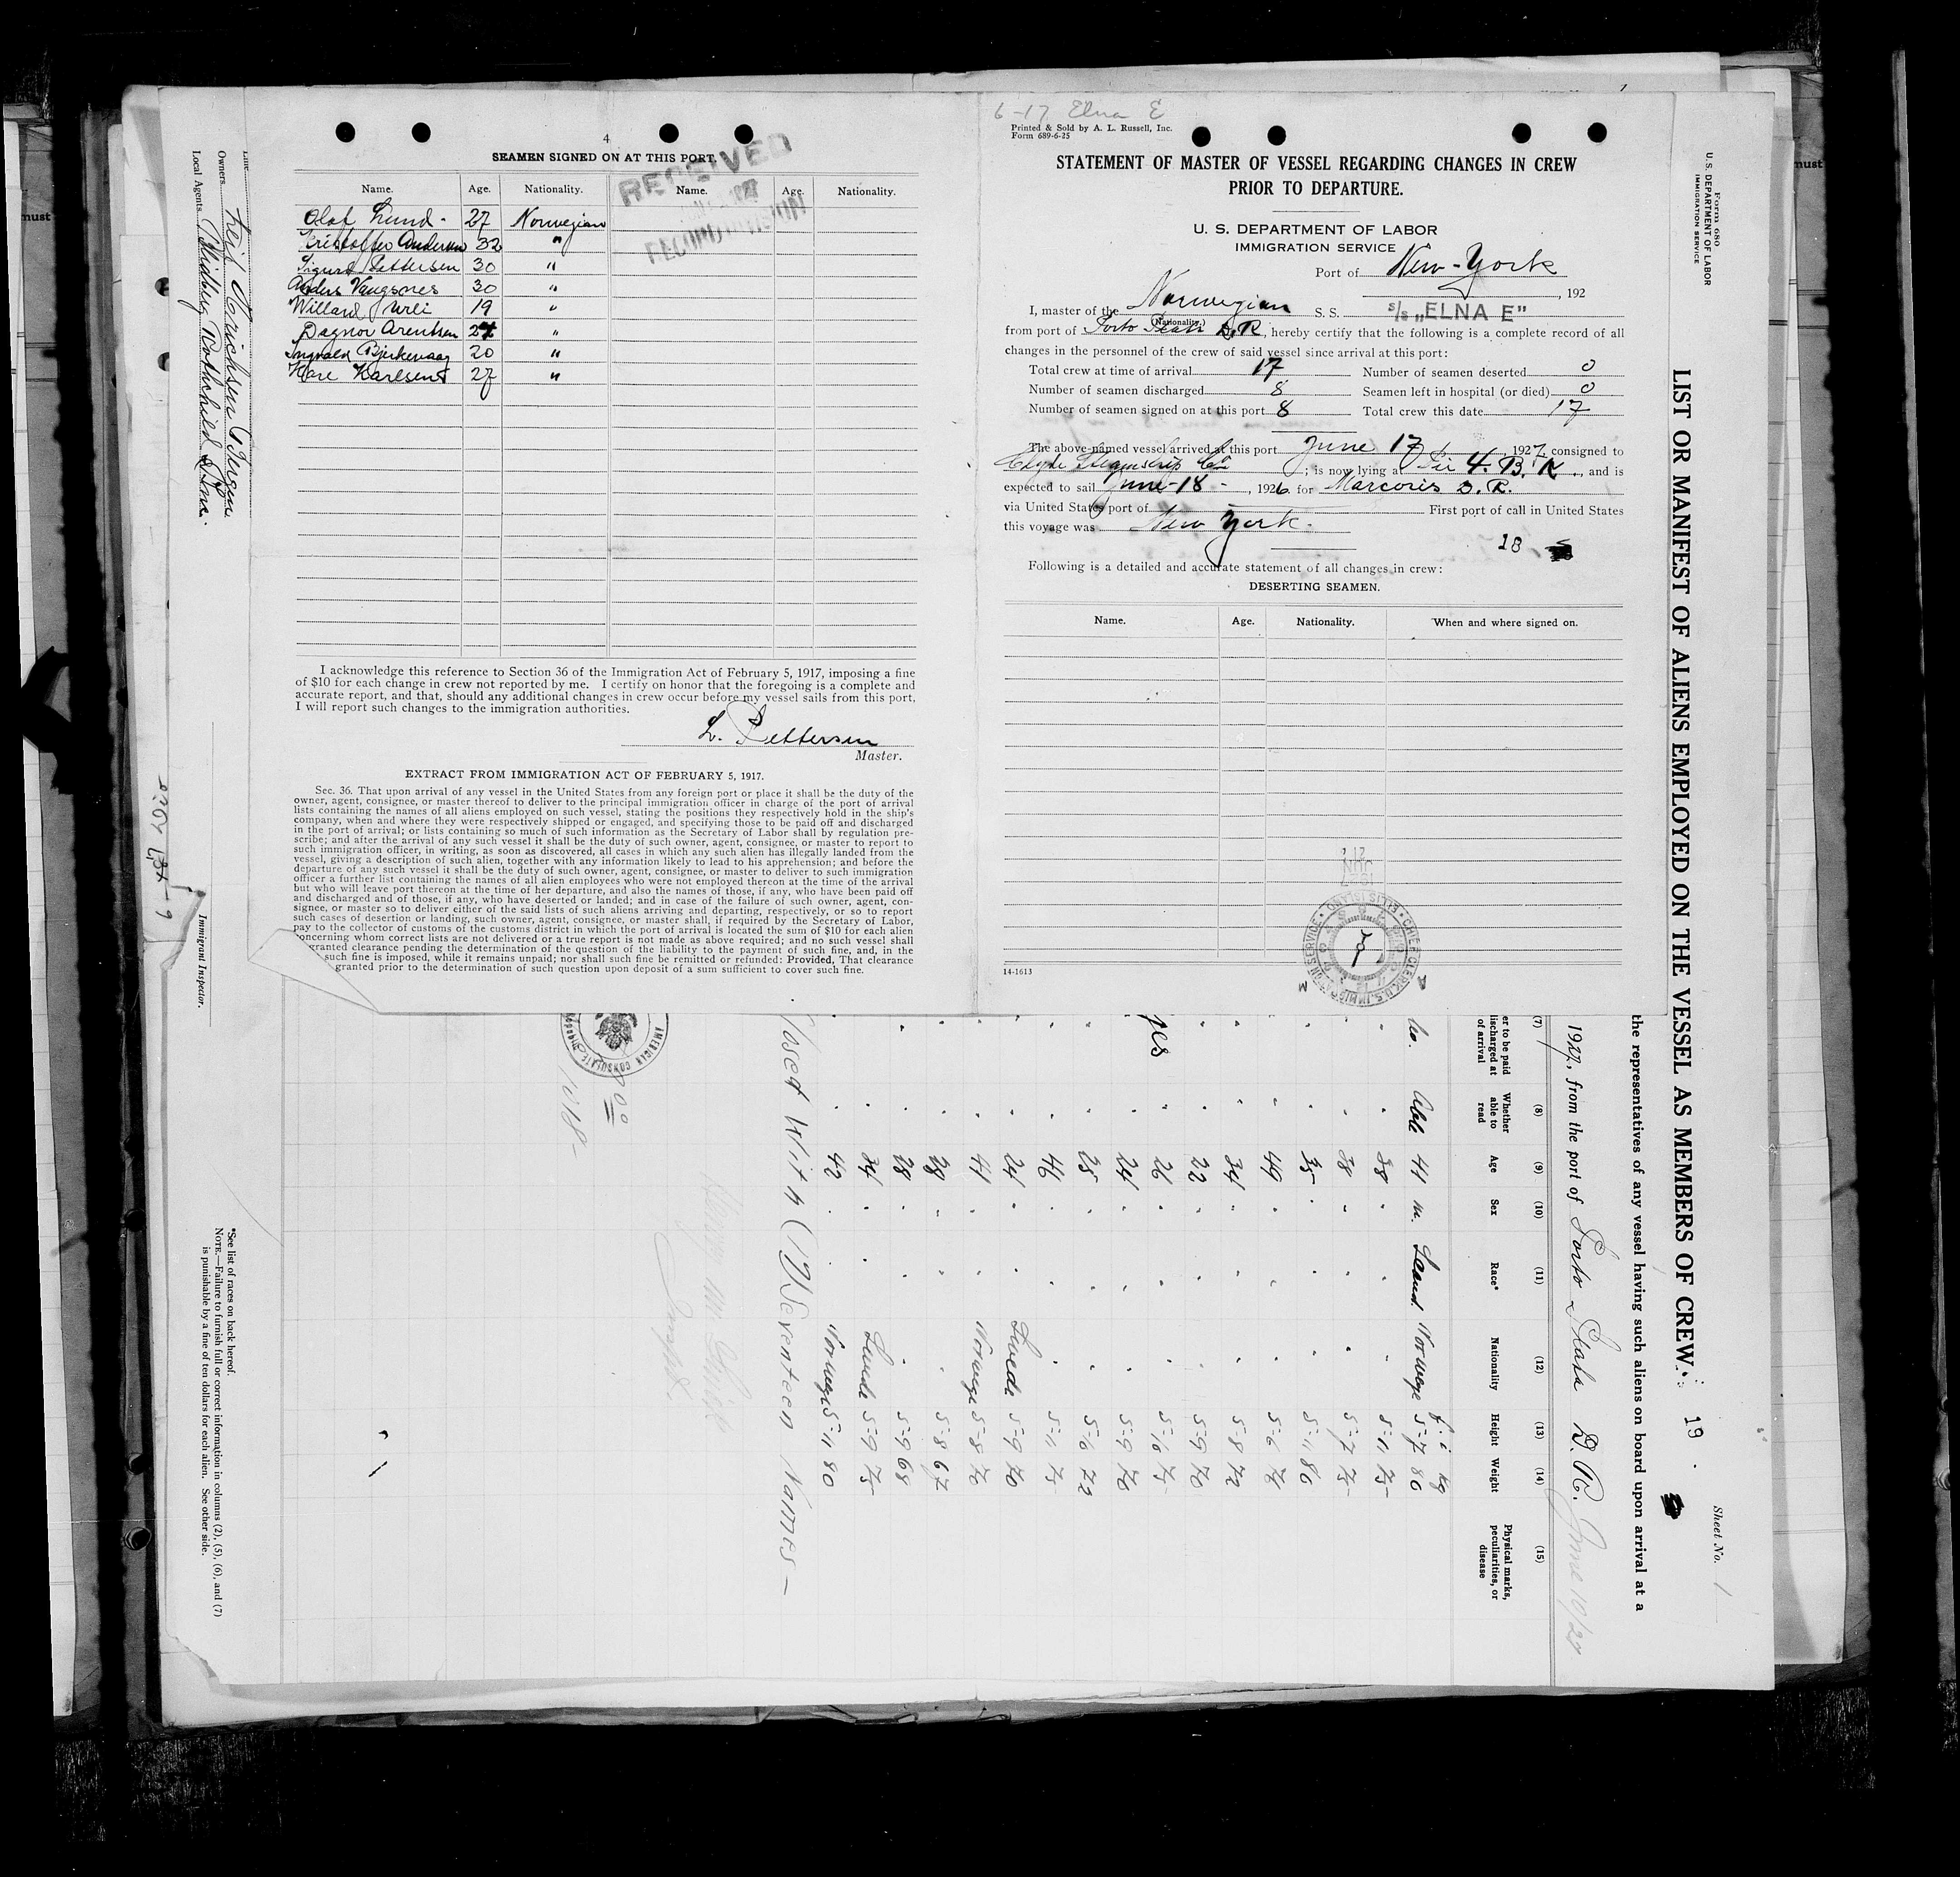 4
SEAMEN SIGNED ON AT THIS PORT.
RECEIVED
Name. Age. Nationality. Name. Age. Nationality.
Olaf Lund 27 Norwegian
Kristoffer Andersen 32 "
Sigurd Pettersen 30 "
Anders Vangsnes 30 "
Willard 19 "
Dagnor Arentsen "
Ingvald Bjerkevaag 20 "
Kare Karlsen 27 "
I acknowledge this reference to Section 36 of the Immigration Act of February 5, 1917, imposing a fine
of $10 for each change in crew not reported by me. I certify on honor that the foregoing is a complete and
accurate report, and that, should any additional changes in crew occur before my vessel sails from this port,
I will report such changes to the immigration authorities.
L. Pettersen
Master.
EXTRACT FROM IMMIGRATION ACT OF FEBRUARY 5, 1917.
Sec. 36. That upon arrival of any vessel in the United States from any foreign port or place it shall be the duty of the
owner, agent, consignee, or master thereof to deliver to the principal immigration officer in charge of the port of arrival
lists containing the names of all aliens employed on such vessel, stating the positions they respectively hold in the ship's
company, when and where they were respectively shipped or engaged, and specifying those to be paid off and discharged
in the port of arrival; or lists containing so much of such information as the Secretary of Labor shall by regulation pre-
scribe; and after the arrival of any such vessel it shall be the duty of such owner, agent, consignee, or master to report to
such immigration officer, in writing, as soon as discovered, all cases in which any such alien has illegally landed from the
vessel, giving a description of such alien, together with any information likely to lead to his apprehension; and before the
departure of any such vessel it shall be the duty of such owner, agent, consignee, or master to deliver to such immigration
officer a further list containing the names of all alien employees who were not employed thereon at the time of the arrival
but who will leave port thereon at the time of her departure, and also the names of those, if any, who have been paid off
and discharged and of those, if any, who have deserted or landed; and in case of the failure of such owner, agent, con-
signee, or master so to deliver either of the said lists of such aliens arriving and departing, respectively, or so to report
such cases of desertion or landing, such owner, agent, consignee, or master shall, if required by the Secretary of Labor,
pay to the collector of customs of the customs district in which the port of arrival is located the sum of $10 for each alien
concerning whom correct lists are not delivered or a true report is not made as above required; and no such vessel shall
granted clearance pending the determination of the question of the liability to the payment of such fine, and, in the
such fine is imposed, while it remains unpaid; nor shall such fine be remitted or refunded: Provided, That clearance
granted prior to the determination of such question upon deposit of a sum sufficient to cover such fine.
6-17 Elna E
Printed & Sold by A. L. Russell, Inc.
Form 689-6-25
STATEMENT OF MASTER OF VESSEL REGARDING CHANGES IN CREW
PRIOR TO DEPARTURE.
U. S. DEPARTMENT OF LABOR
IMMIGRATION SERVICE
Port of New-York
, 192
I, master of the Norwegian S. S. s/s „ELNA E"
(Nationality.)
from port of Porto D.R, hereby certify that the following is a complete record of all
changes in the personnel of the crew of said vessel since arrival at this port:
Total crew at time of arrival 17 Number of seamen deserted 0
Number of seamen discharged 8 Seamen left in hospital (or died) 0
Number of seamen signed on at this port 8 Total crew this date 17
The above-named vessel arrived at this port June 17, 1927, consigned to
Clyde Steamship Co; is now lying at Pir 4. B. K, and is
expected to sail June-18-, 1926 for Marcoris D. R.
via United States port of First port of call in United States
this voyage was New York.
18
Following is a detailed and accurate statement of all changes in crew:
DESERTING SEAMEN.
Name. Age. Nationality. When and where signed on.
JUN
CHIEF CLERK, U.S. IMMIGRATION SERVICE • ELLIS ISLAND •
14-1613
Form 680
U. S. DEPARTMENT OF LABOR
IMMIGRATION SERVICE
Sheet No. 1
LIST OR MANIFEST OF ALIENS EMPLOYED ON THE VESSEL AS MEMBERS OF CREW.
19
the representatives of any vessel having such aliens on board upon arrival at a
1927, from the port of Porto Plata D. R. June 10/27
(7) (8) (9) (10) (11) (12) (13) (14) (15)
er to be paid
discharged at
of arrival
Whether
able to
read
Age
Sex
Race*
Nationality
Height
Weight
Physical marks,
peculiarities, or
disease
f. i. kg
No. Able 41 m. Scand. Norwege 5-7 80
" " 38 " " " 5-11 75
" " 38 " " " 5-7 75
" " 35 " " " 5-11 86
" " 49 " " " 5-6 76
" " 34 " " " 5-8 72
" " 22 " " " 5-9 70
yes " 26 " " " 5-10 75
" " 24 " " " 5-9 70
" " 25 " " " 5-10 72
" " 46 " " " 5-11 75
" " 24 " " Swede 5-9 70
" " 41 " " Norwege 5-8 70
" " 28 " " " 5-8 67
" " 28 " " " 5-9 68
" " 34 " " 5-9 75
" " 42 " " Norwege 5-11 80
Closed With (17) Seventeen Names—
AMERICAN CONSULATE
Line
Owners Leif Erichsen Bergen
Local Agents Midbley Rothchild Inc.
Immigrant Inspector.
*See list of races on back hereof.
NOTE.—Failure to furnish full or correct information in columns (2), (5), (6), and (7)
is punishable by a fine of ten dollars for each alien. See other side.
must
must